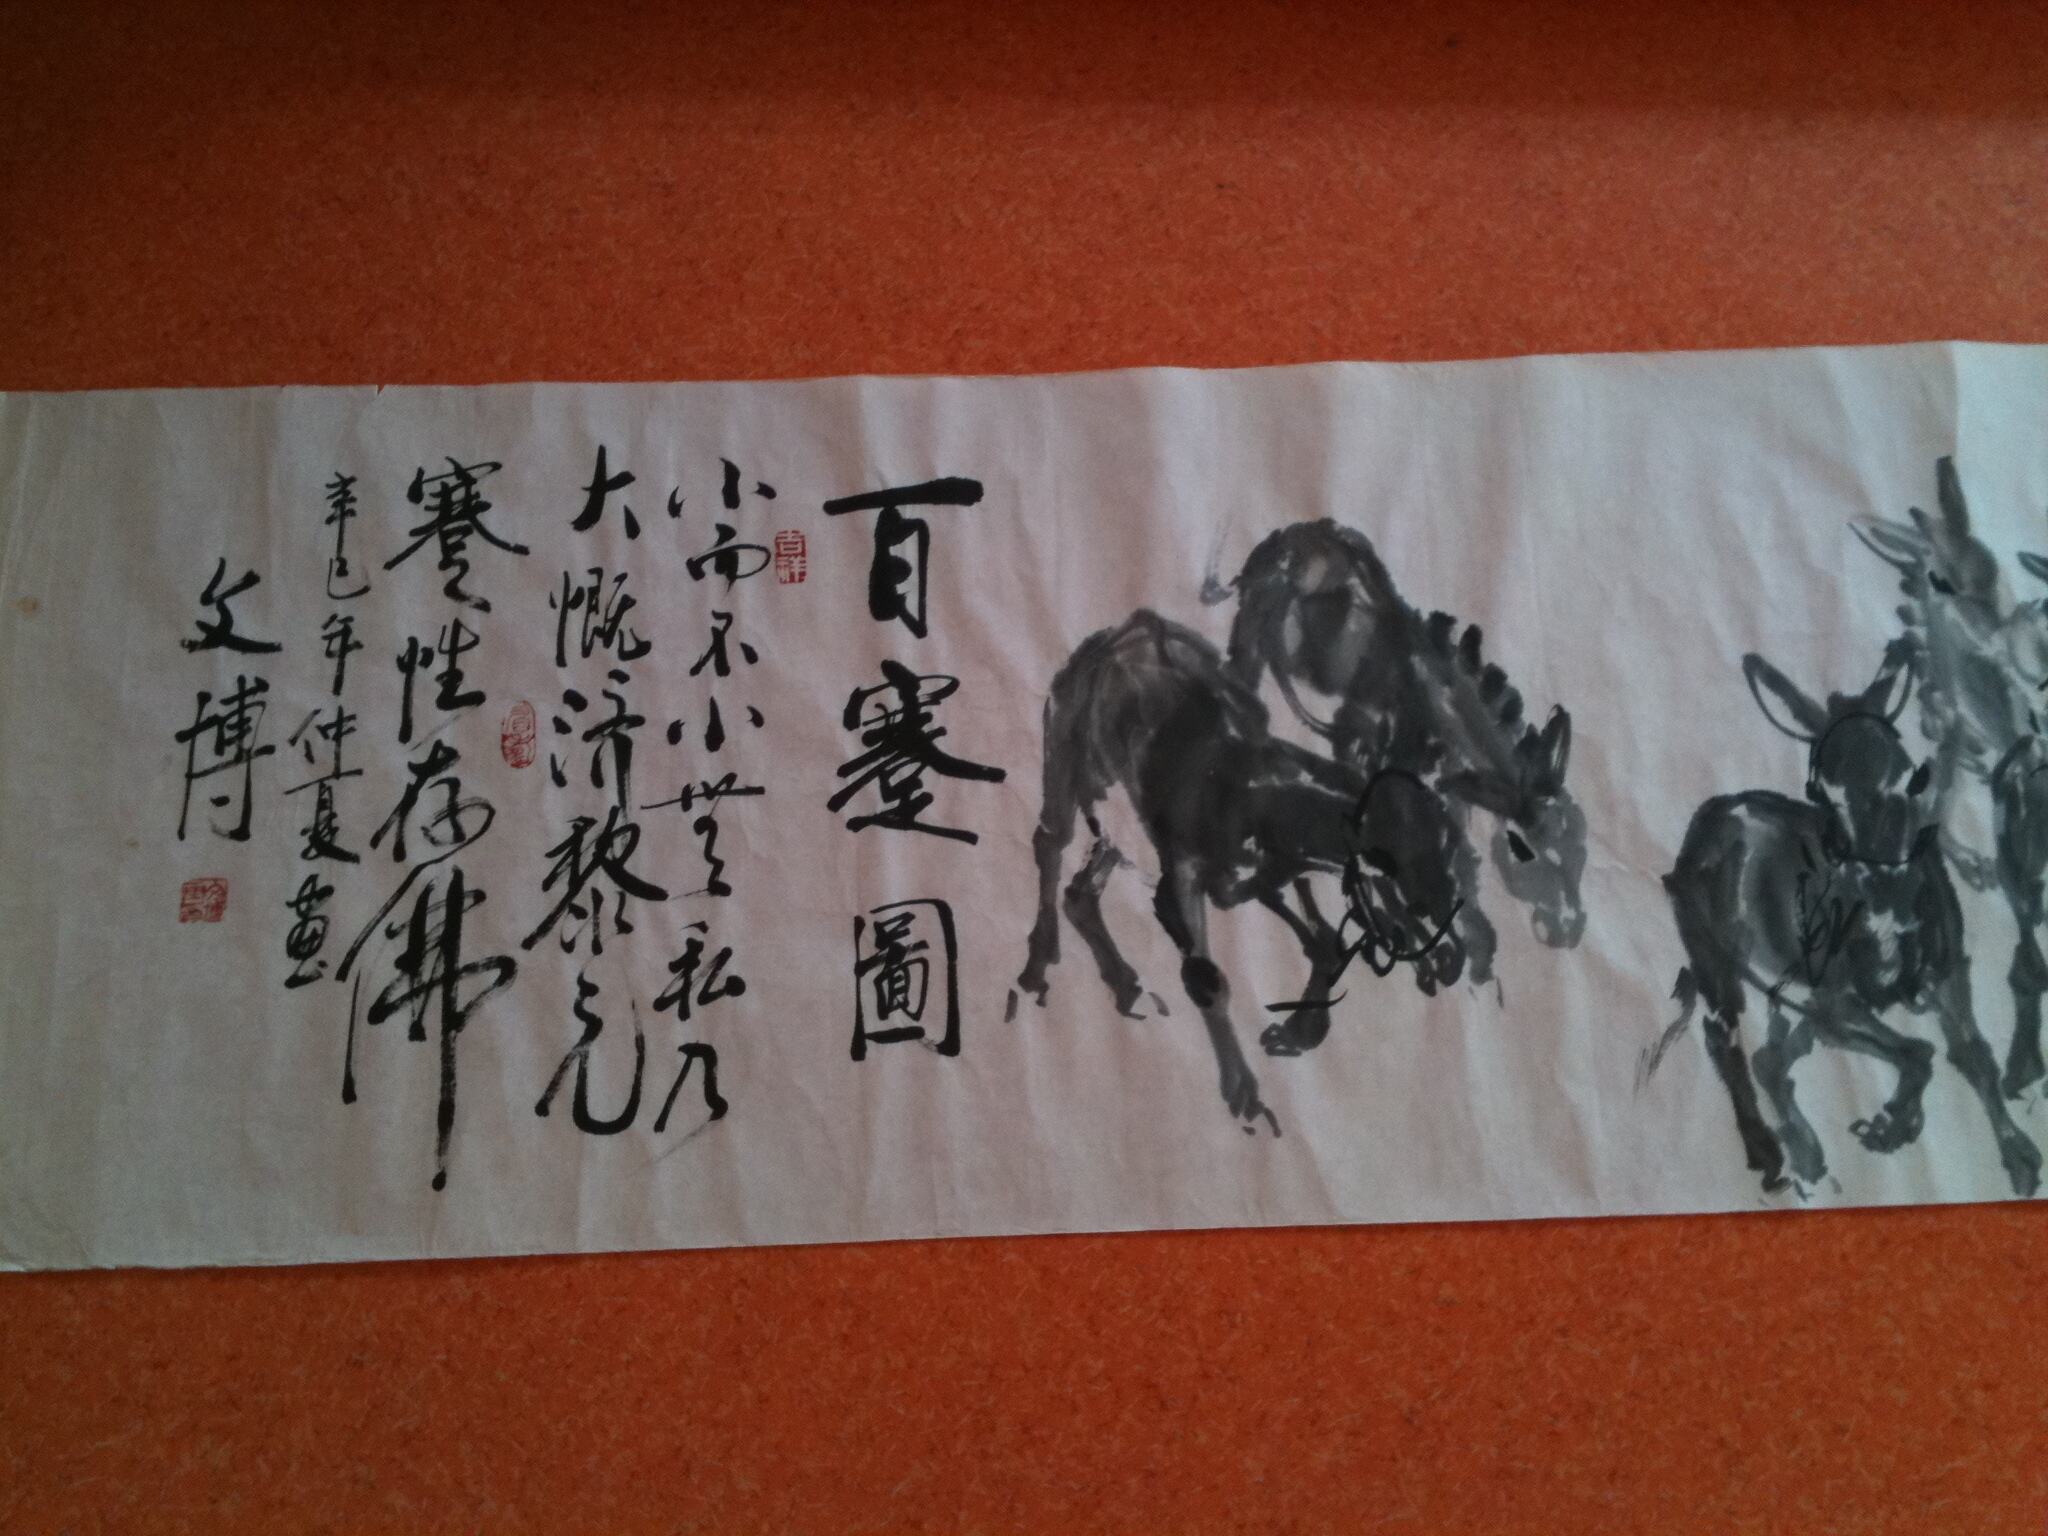 百蹇圖
吉祥
小而不小無私乃
大慨济黎元
蹇性存佛
辛巳年仲夏畫
文博